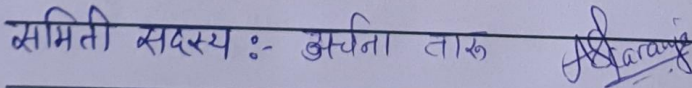 समिती सदस्य :- अर्चना तारू